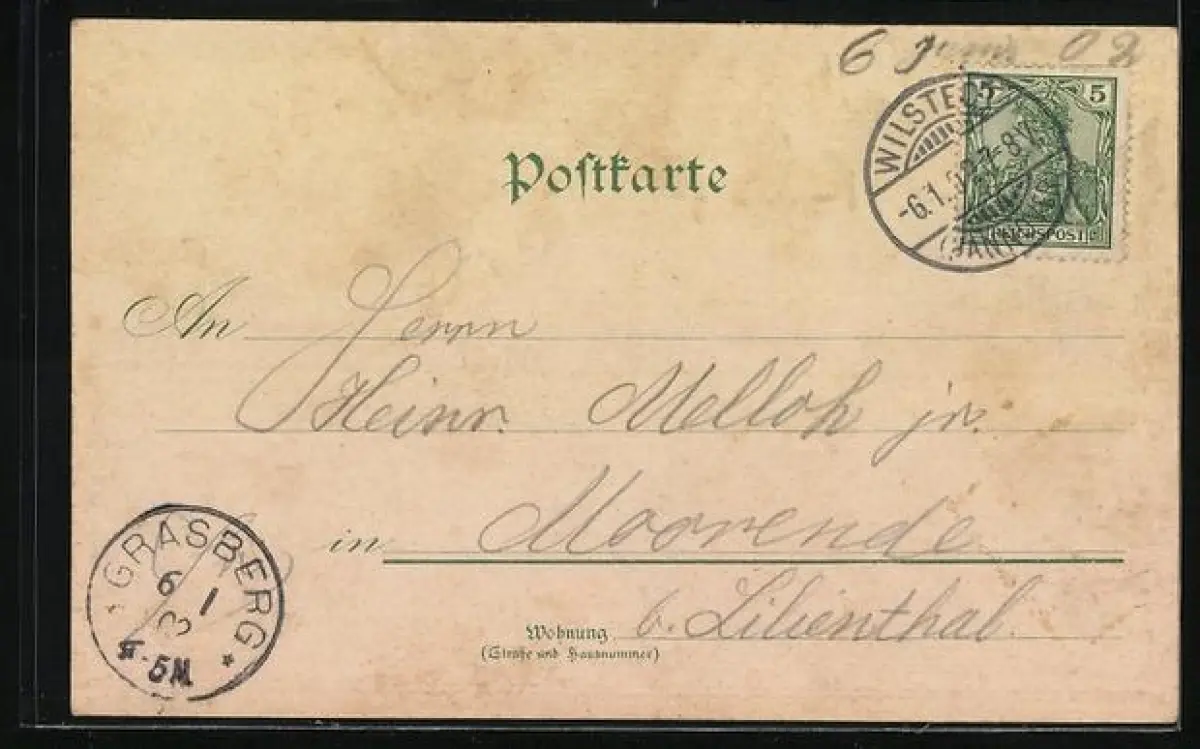 6 02
5 5
REICHSPOST
WILSTEDT
-6.1.02 7-8V.
(HANN
Postkarte
An Herrn
Heinr. Melloh jr.
in Moorende
Wohnung b. Lilienthal.
(Straße und Hausnummer)
GRASBERG
6 1
5N.